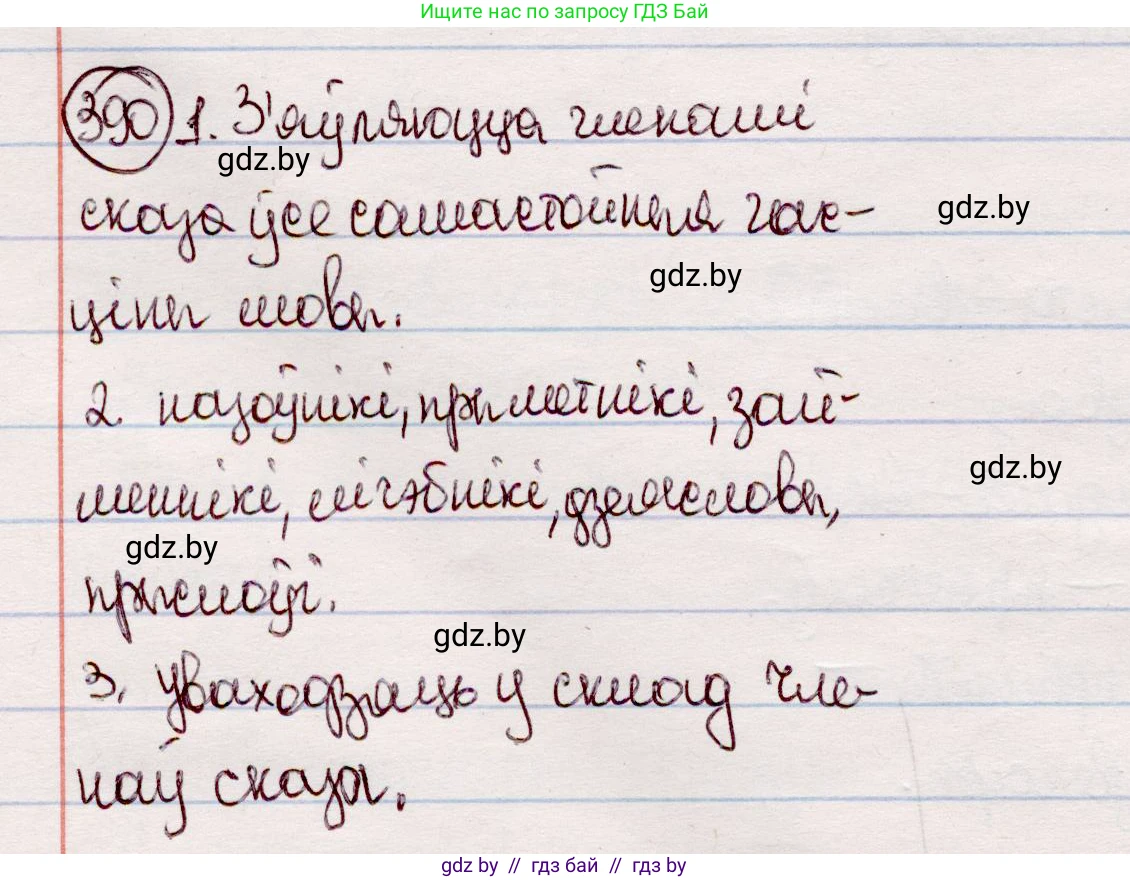 Ищите нас по запросу ГДЗ Бай
390 1. З'яўляюцца членамі
gdz.by
сказа ўсе самастойныя час-
gdz.by
gdz.by
ціны мовы.
2. назоўнікі, прыметнікі, зай-
gdz.by
меннікі, лічэбнікі, дзеясловы,
gdz.by
прыслоўі.
gdz.by
3. Уваходзяць у склад чле-
наў сказа.
gdz by // гдз бай // гдз by